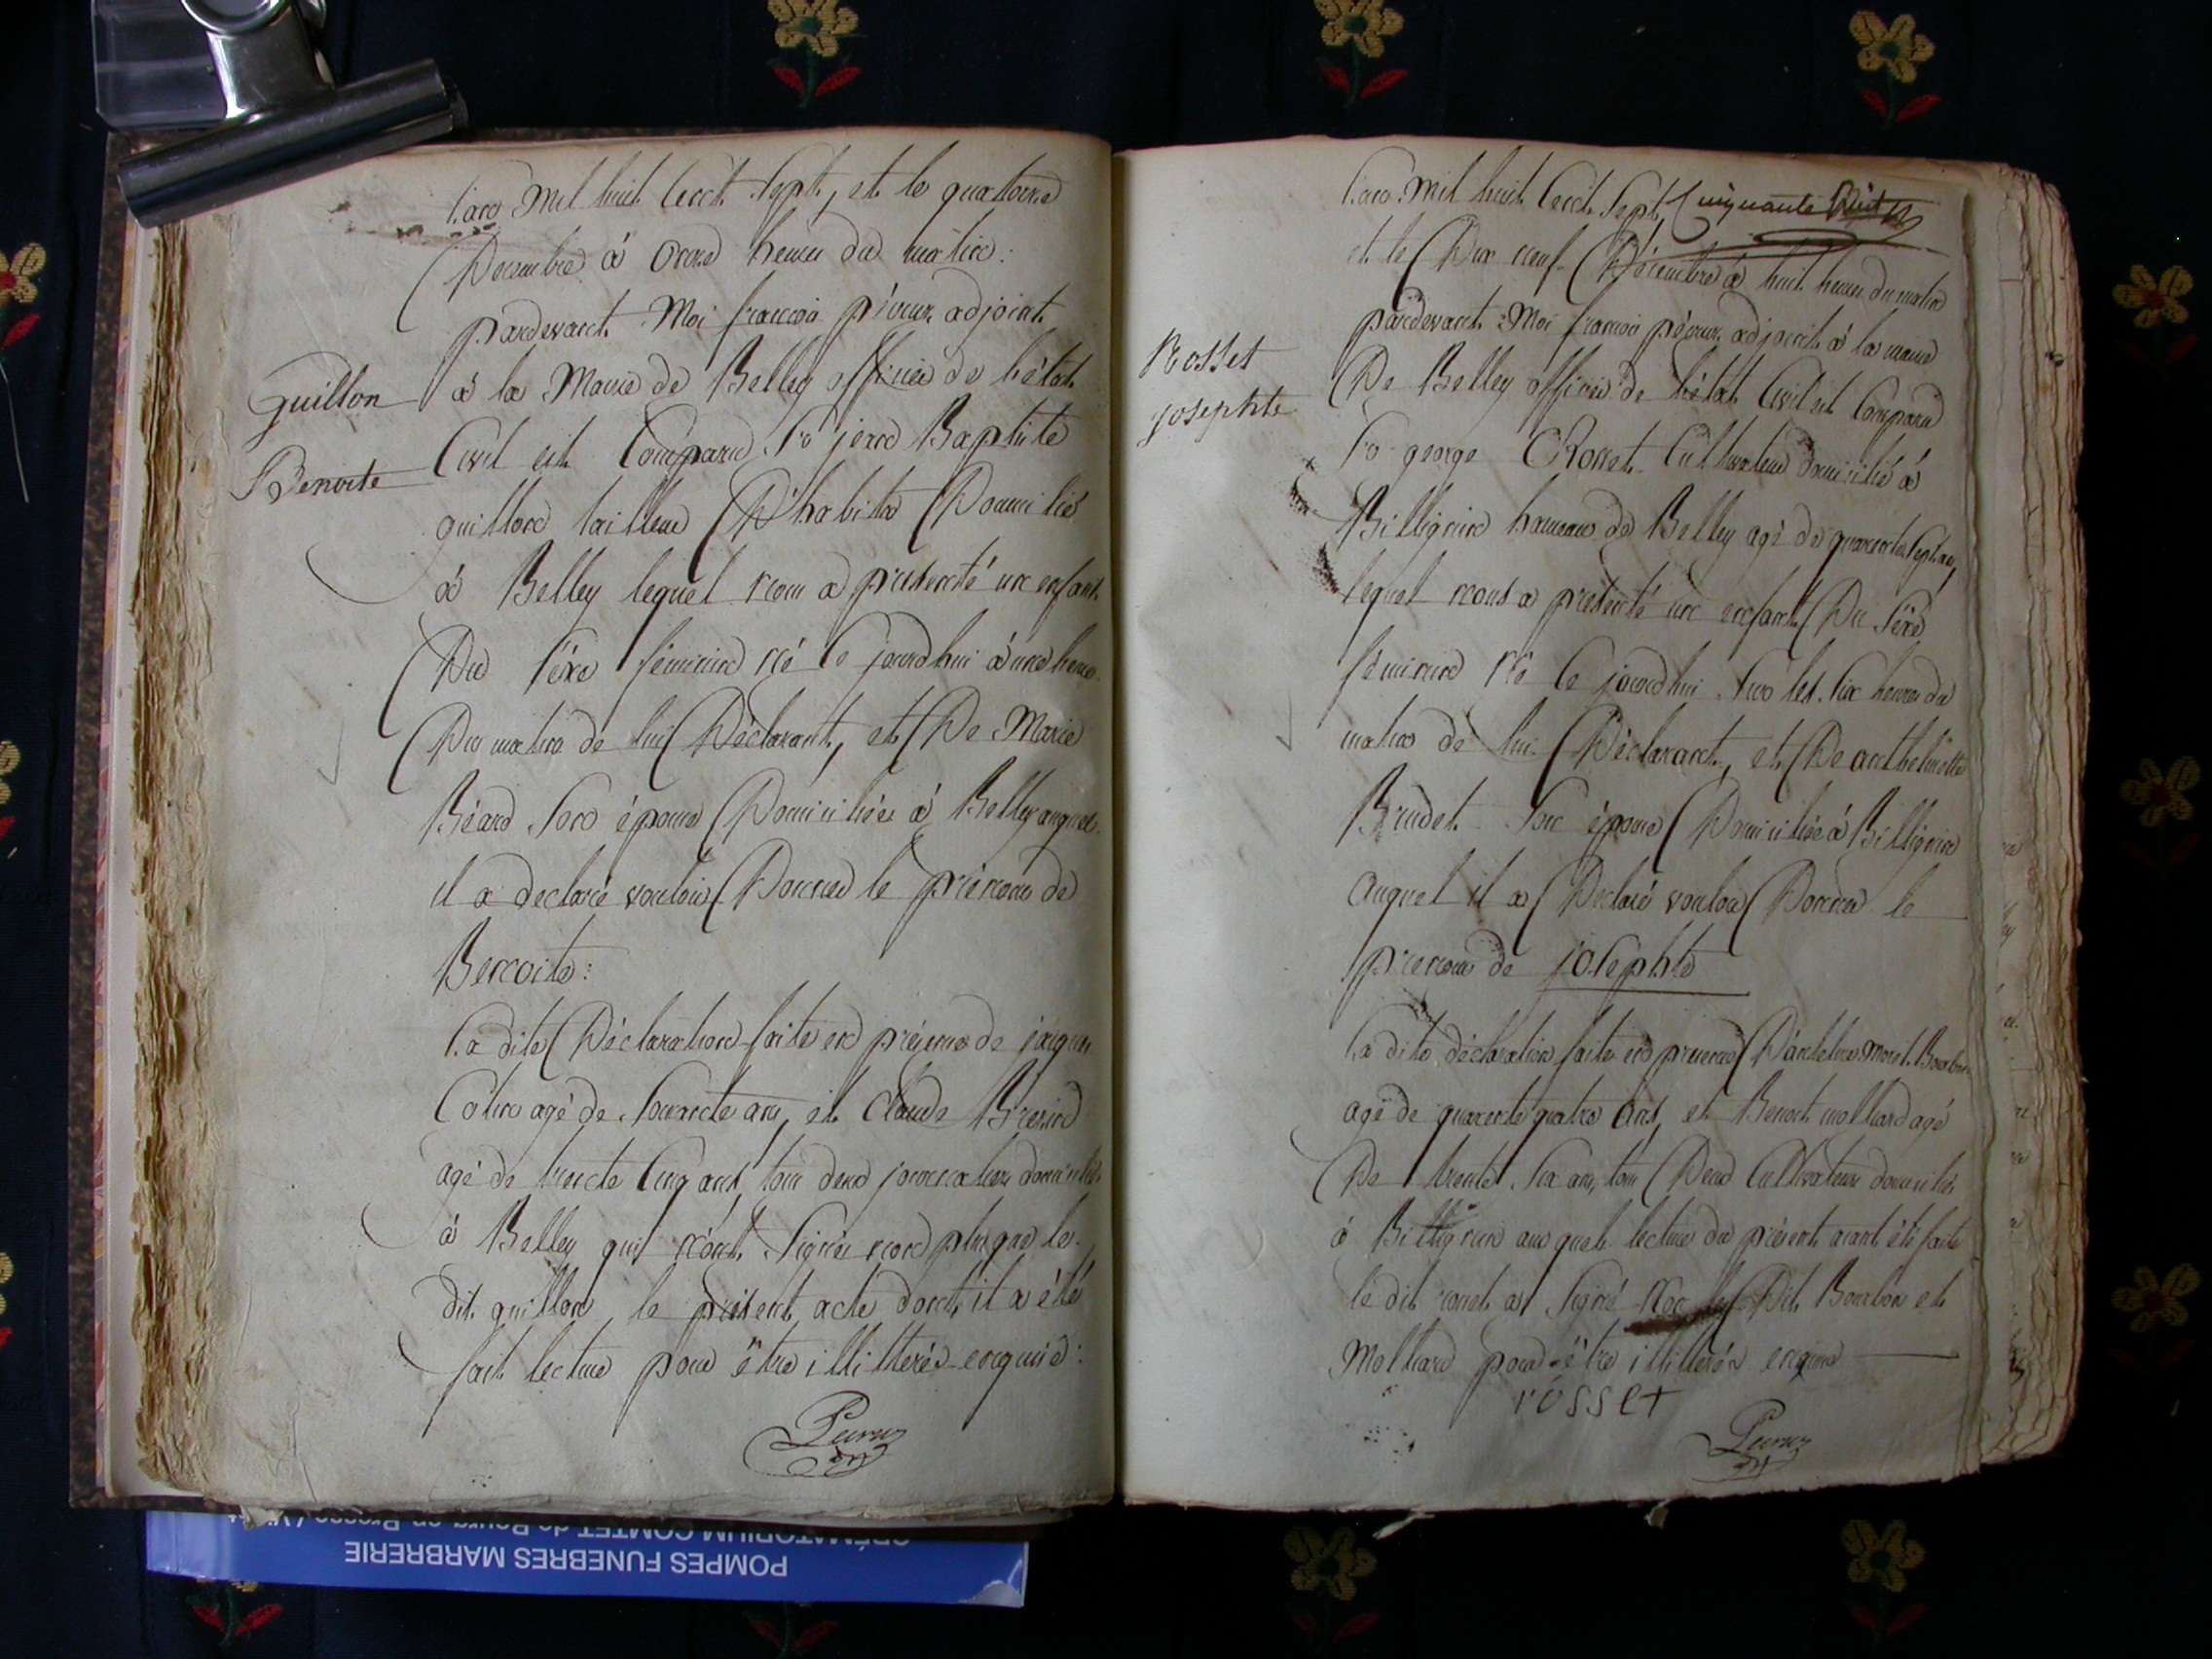 L'an Mil huit Cent Sept, et le quatorze
Decembre à Onze heures du matin:
pardevant Moi françois péroux adjoint
à la Mairie de Belley officier de l'état
Guillon
Civil est Comparu Sr jean Baptiste
Benoite
guillon tailleur D'habits Domicilié
à Belley lequel nous a présenté un enfant
Du Séxe féminin né Ce jourdhui à une heure
Du matin de lui Déclarant, et De Marie
Béard Son épouse Domiciliée à Belley auquel
il a declaré vouloir Donner le prénom de
Benoite:
La dite Déclaration faite en présence de jacques
Colin agé de Soixante ans, et Claude
agé de trente Cinq ans, tous deux journaliers domiciliés
à Belley qui n'ont Signés non plus que le
dit guillon le présent acte dont il a été
fait lecture pour être illitterés enquis:
L'an Mil huit Cent Sept, Cinquante huit
et le Dix neuf Décembre à huit heures du matin
pardevant Moi françois péroux adjoint à la mairie
Rosset
josephte
De Belley officier de l'état Civil est Comparu
Sr george Rosset Cultivateur domicilié à
Billignin hameau de Belley agé de quarente Sept ans,
lequel nous a présenté un enfant Du Séxe
féminin né Ce jourdhui Sur les Six heures du
matin de lui Déclarant, et De anthelmette
Brudet Son épouse Domiciliée à Billignin
auquel il a Declaré vouloir Donner le
prenom de josephte
La dite déclaration faite en présence D'anthelme Bourbon
agé de quarente quatre ans, et Benoit molliard agé
De trente Six ans, tous Deux Cultivateurs domiciliés
à Billignin aux quels lecture du présent aiant été faite
le dit rosset a Signé Non les Dit Bourbon et
Molliard pour être illitterés enquis
rosset